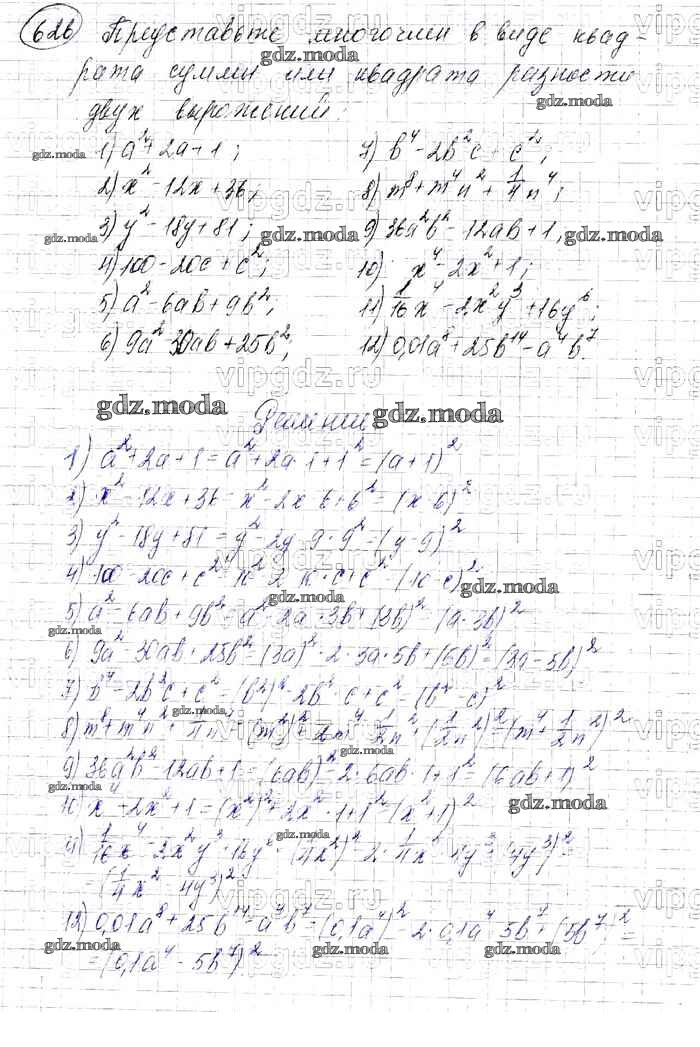 626 Представьте многочлен в виде квад-
рата суммы или квадрата разности
двух выражений:
1) a² + 2a + 1;
2) x² - 12x + 36,
3) y² - 18y + 81;
4) 100 - 20c + c²;
5) a² - 6ab + 9b²;
6) 9a² 30ab + 25b²;
7) b⁴ - 2b²c + c²;
8) m⁸ + m⁴n² + 1/4 n⁴;
9) 36a²b² - 12ab + 1,
10) x⁴ - 2x² + 1;
11) 1/16 x⁴ - 2x²y³ + 16y⁶;
12) 0,01a⁸ + 25b¹⁴ - a⁴b⁷.
Решение
1) a² + 2a + 1 = a² + 2a·1 + 1² = (a + 1)²
2) x² - 12x + 36 = x² - 2x·6 + 6² = (x - 6)²
3) y² - 18y + 81 = y² - 2y·9 + 9² = (y - 9)²
4) 100 - 20c + c² = 10² - 2·10·c + c² = (10 - c)²
5) a² - 6ab + 9b² = a² - 2a·3b + (3b)² = (a - 3b)²
6) 9a² - 30ab + 25b² = (3a)² - 2·3a·5b + (5b)² = (3a - 5b)²
7) b⁴ - 2b²c + c² = (b²)² - 2b²·c + c² = (b² - c)²
8) m⁸ + m⁴n² + 1/4 n⁴ = (m⁴)² + 2m⁴·1/2 n² + (1/2 n²)² = (m⁴ + 1/2 n²)²
9) 36a²b² - 12ab + 1 = (6ab)² - 2·6ab·1 + 1² = (6ab + 1)²
10) x⁴ - 2x² + 1 = (x²)² + 2x²·1 + 1² = (x² + 1)²
11) 1/16 x⁴ - 2x²y³ + 16y⁶ = (1/4 x²)² - 2·1/4 x²·4y³ + (4y³)² =
= (1/4 x² - 4y³)²
12) 0,01a⁸ + 25b¹⁴ - a⁴b⁷ = (0,1a⁴)² - 2·0,1a⁴·5b⁷ + (5b⁷)² =
= (0,1a⁴ - 5b⁷)²
gdz.moda
vipgdz.ru